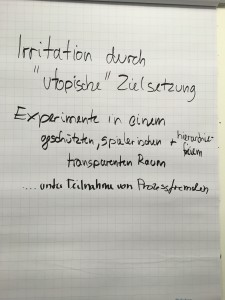 Irritation durch
"utopische" Zielsetzung
Experimente in einem
geschützten, spielerischen + hierarchie-
freiem
transparenten Raum
.... unter Teilnahme von Prozessfremden